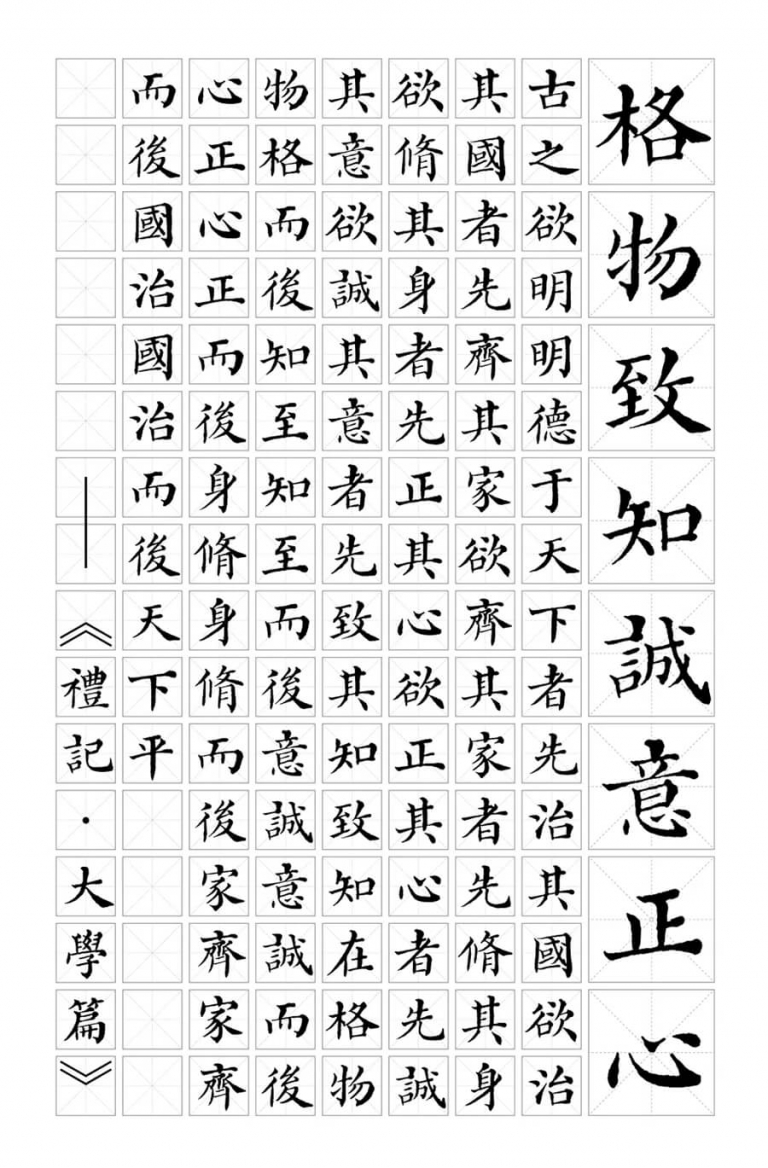 格物致知誠意正心
古之欲明明德于天下者先治其國欲治
其國者先齊其家欲齊其家者先脩其身
欲脩其身者先正其心欲正其心者先誠
其意欲誠其意者先致其知致知在格物
物格而後知至知至而後意誠意誠而後
心正心正而後身脩身脩而後家齊家齊
而後國治國治而後天下平
——《禮記·大學篇》